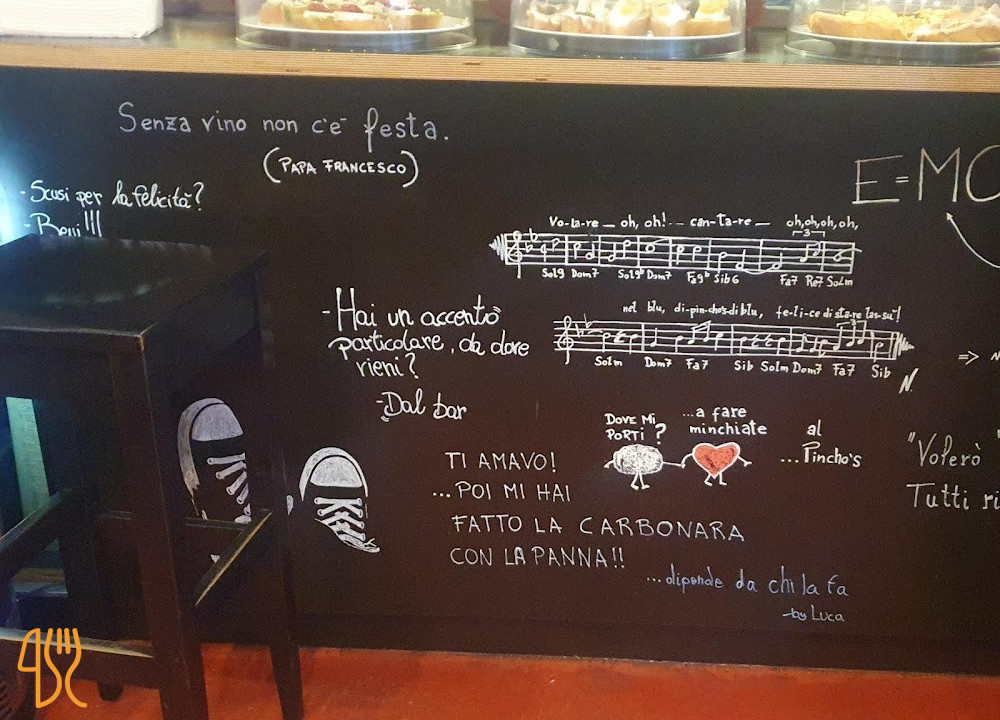 Senza vino non c'e' festa.
(PAPA FRANCESCO)
E=MC
- Scusi per la felicità?
- Beni!!!
Vo-la-re — oh, oh! -- can-ta-re — oh,oh,oh,oh,
3
Sol9 Dom7 Sol9b Dom7 Fa9b Sib6 Fa7 Re7 Solm
nel blu, di-pin-cho's-di blu, fe-li-ce di sta-re las-su'!
3
Solm Dom7 Fa7 Sib Solm Dom7 Fa7 Sib
- Hai un accento
particolare, da dove
vieni?
- Dal bar
=>
DOVE MI
PORTI?
...a fare
minchiate
al
...Pincho's
"Volerò
Tutti ri
TI AMAVO!
...POI MI HAI
FATTO LA CARBONARA
CON LA PANNA!!
...dipende da chi la fa
-by Luca